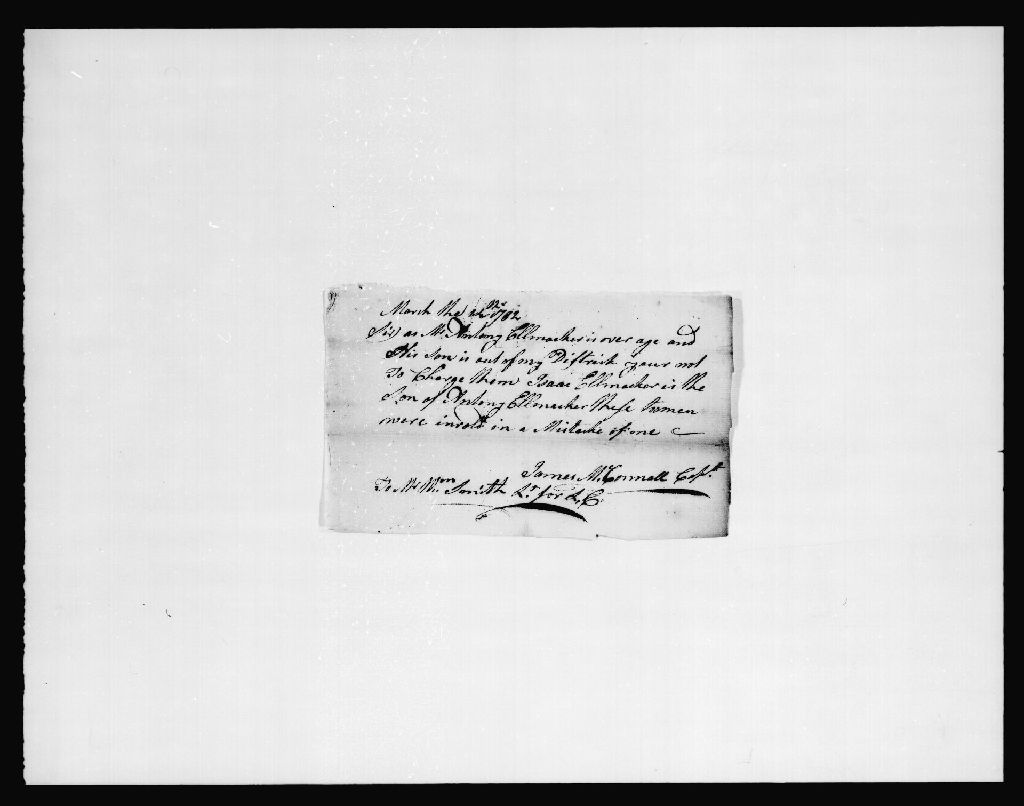 March the 12d 1782
Sir) as Mr Antony Ellmacker is over age and
His Son is out of my Distrect your not
To Charge them Isaac Ellmacker is the
Son of Antony Ellmacker these two men
were inrold in a Mistacke of me
James McConnall Capt.
To Mr Wm Smith Lt. for L. C.